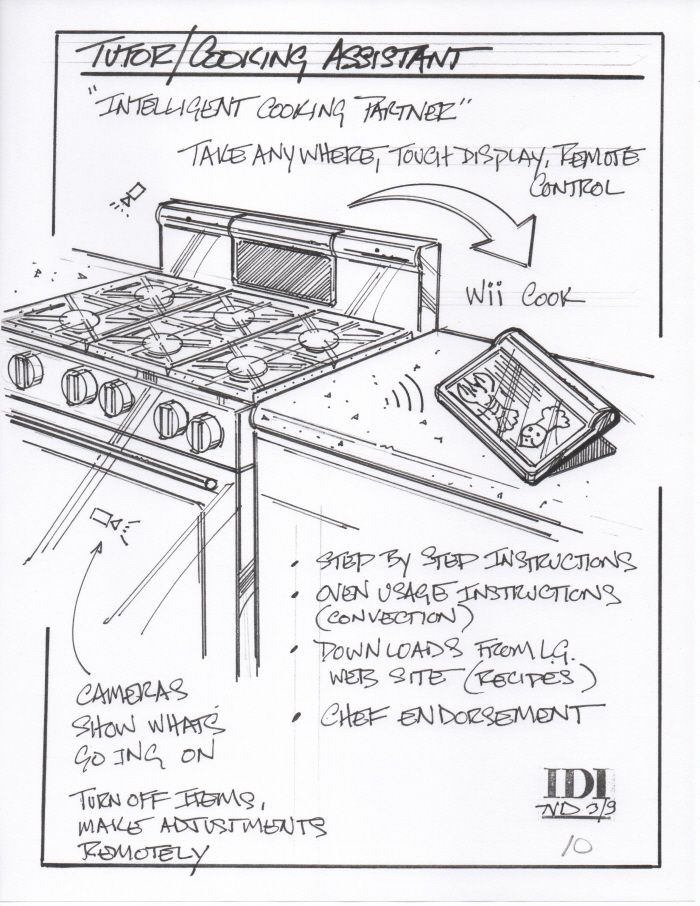 TUTOR/COOKING ASSISTANT
"INTELLIGENT COOKING PARTNER"
TAKE ANYWHERE, TOUCH DISPLAY, REMOTE
CONTROL
Wii COOK
• STEP BY STEP INSTRUCTIONS
• OVEN USAGE INSTRUCTIONS
(CONVECTION)
• DOWNLOADS FROM L.G.
WEB SITE (RECIPES)
• CHEF ENDORSEMENT
CAMERAS
SHOW WHATS
GOING ON
TURN OFF ITEMS,
MAKE ADJUSTMENTS
REMOTELY
IDI
ND 3/9
10